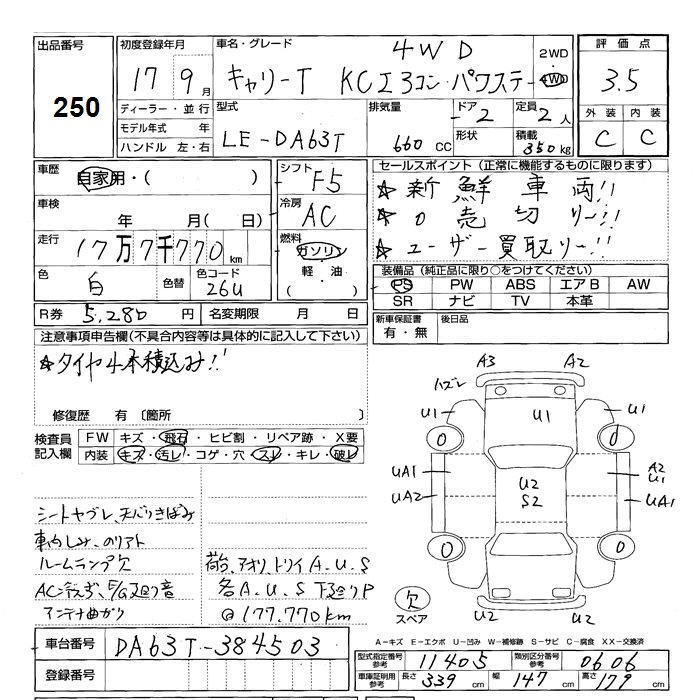 出品番号
250
初度登録年月
17 9月
車名・グレード
4WD
キャリーT KCエアコン・パワステ
2WD
4WD
評価点
3.5
外装 内装
C C
ディーラー・並行
モデル年式 年
ハンドル 左・右
型式
LE-DA63T
排気量
660 CC
ドア 2
形状
定員 2人
積載 350kg
車歴
自家用・( )
車検
年 月( 日)
走行
17万7千770km
色
白
色替
色コード
26U
シフト F5
冷房 AC
燃料
ガソリン
軽・油
( )
セールスポイント(正常に機能するものに限ります)
☆新鮮車両!!
☆0売切リー!!
☆ユーザー買取リー!!
装備品(純正品に限り○をつけてください)
PS PW ABS エアB AW
SR ナビ TV 本革
新車保証書
有・無
後日品
R券 5,280円
名変期限 月 日
注意事項申告欄(不具合内容等は具体的に記入して下さい)
☆タイヤ4本積込み!!
修復歴 有〔箇所 〕
検査員
記入欄
FW キズ・飛石・ヒビ割・リペア跡・X要
内装 キズ・汚レ・コゲ・穴・スレ・キレ・破レ
シートヤブレ、天バリきばみ
車内しみ、のりアト
ルームランプ欠
AC E/G廻り音
アンテナ曲がり
荷台、アオリ、トリイA.U.S
各A.U.S 下廻りP
@177.770km
A3 A2
ハズレ
U1 U1 U1
UA1
UA2
U2
S2
A2
U1
UA1
欠
スペア
U2 U2
A-キズ E-エクボ U-凹み W-補修跡 S-サビ C-腐食 XX-交換済
車台番号
DA63T-384503
登録番号
型式指定番号
参考
11405
類別区分番号
参考
0606
車庫証明用
参考
長さ 339cm 幅 147cm 高さ 179cm